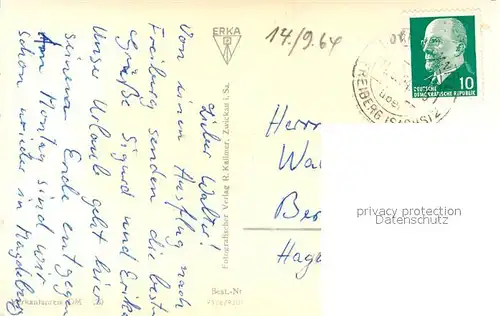 Lieber Walter!
Von einem Ausflug nach
Freiberg senden die besten
Grüße Sigrid und Erika
Unser Urlaub geht hier
seinem Ende entgegen
Am Montag sind wir
schon wieder in Magdeburg
ERKA
Fotografischer Verlag R. Kallmer, Zwickau i. Sa.
Best.-Nr
14./9.64
FREIBERG (SACHS) 2
DEUTSCHE
DEMOKRATISCHE REPUBLIK
10
Herrn
Wal
Ber
Hage
privacy protection
Datenschutz